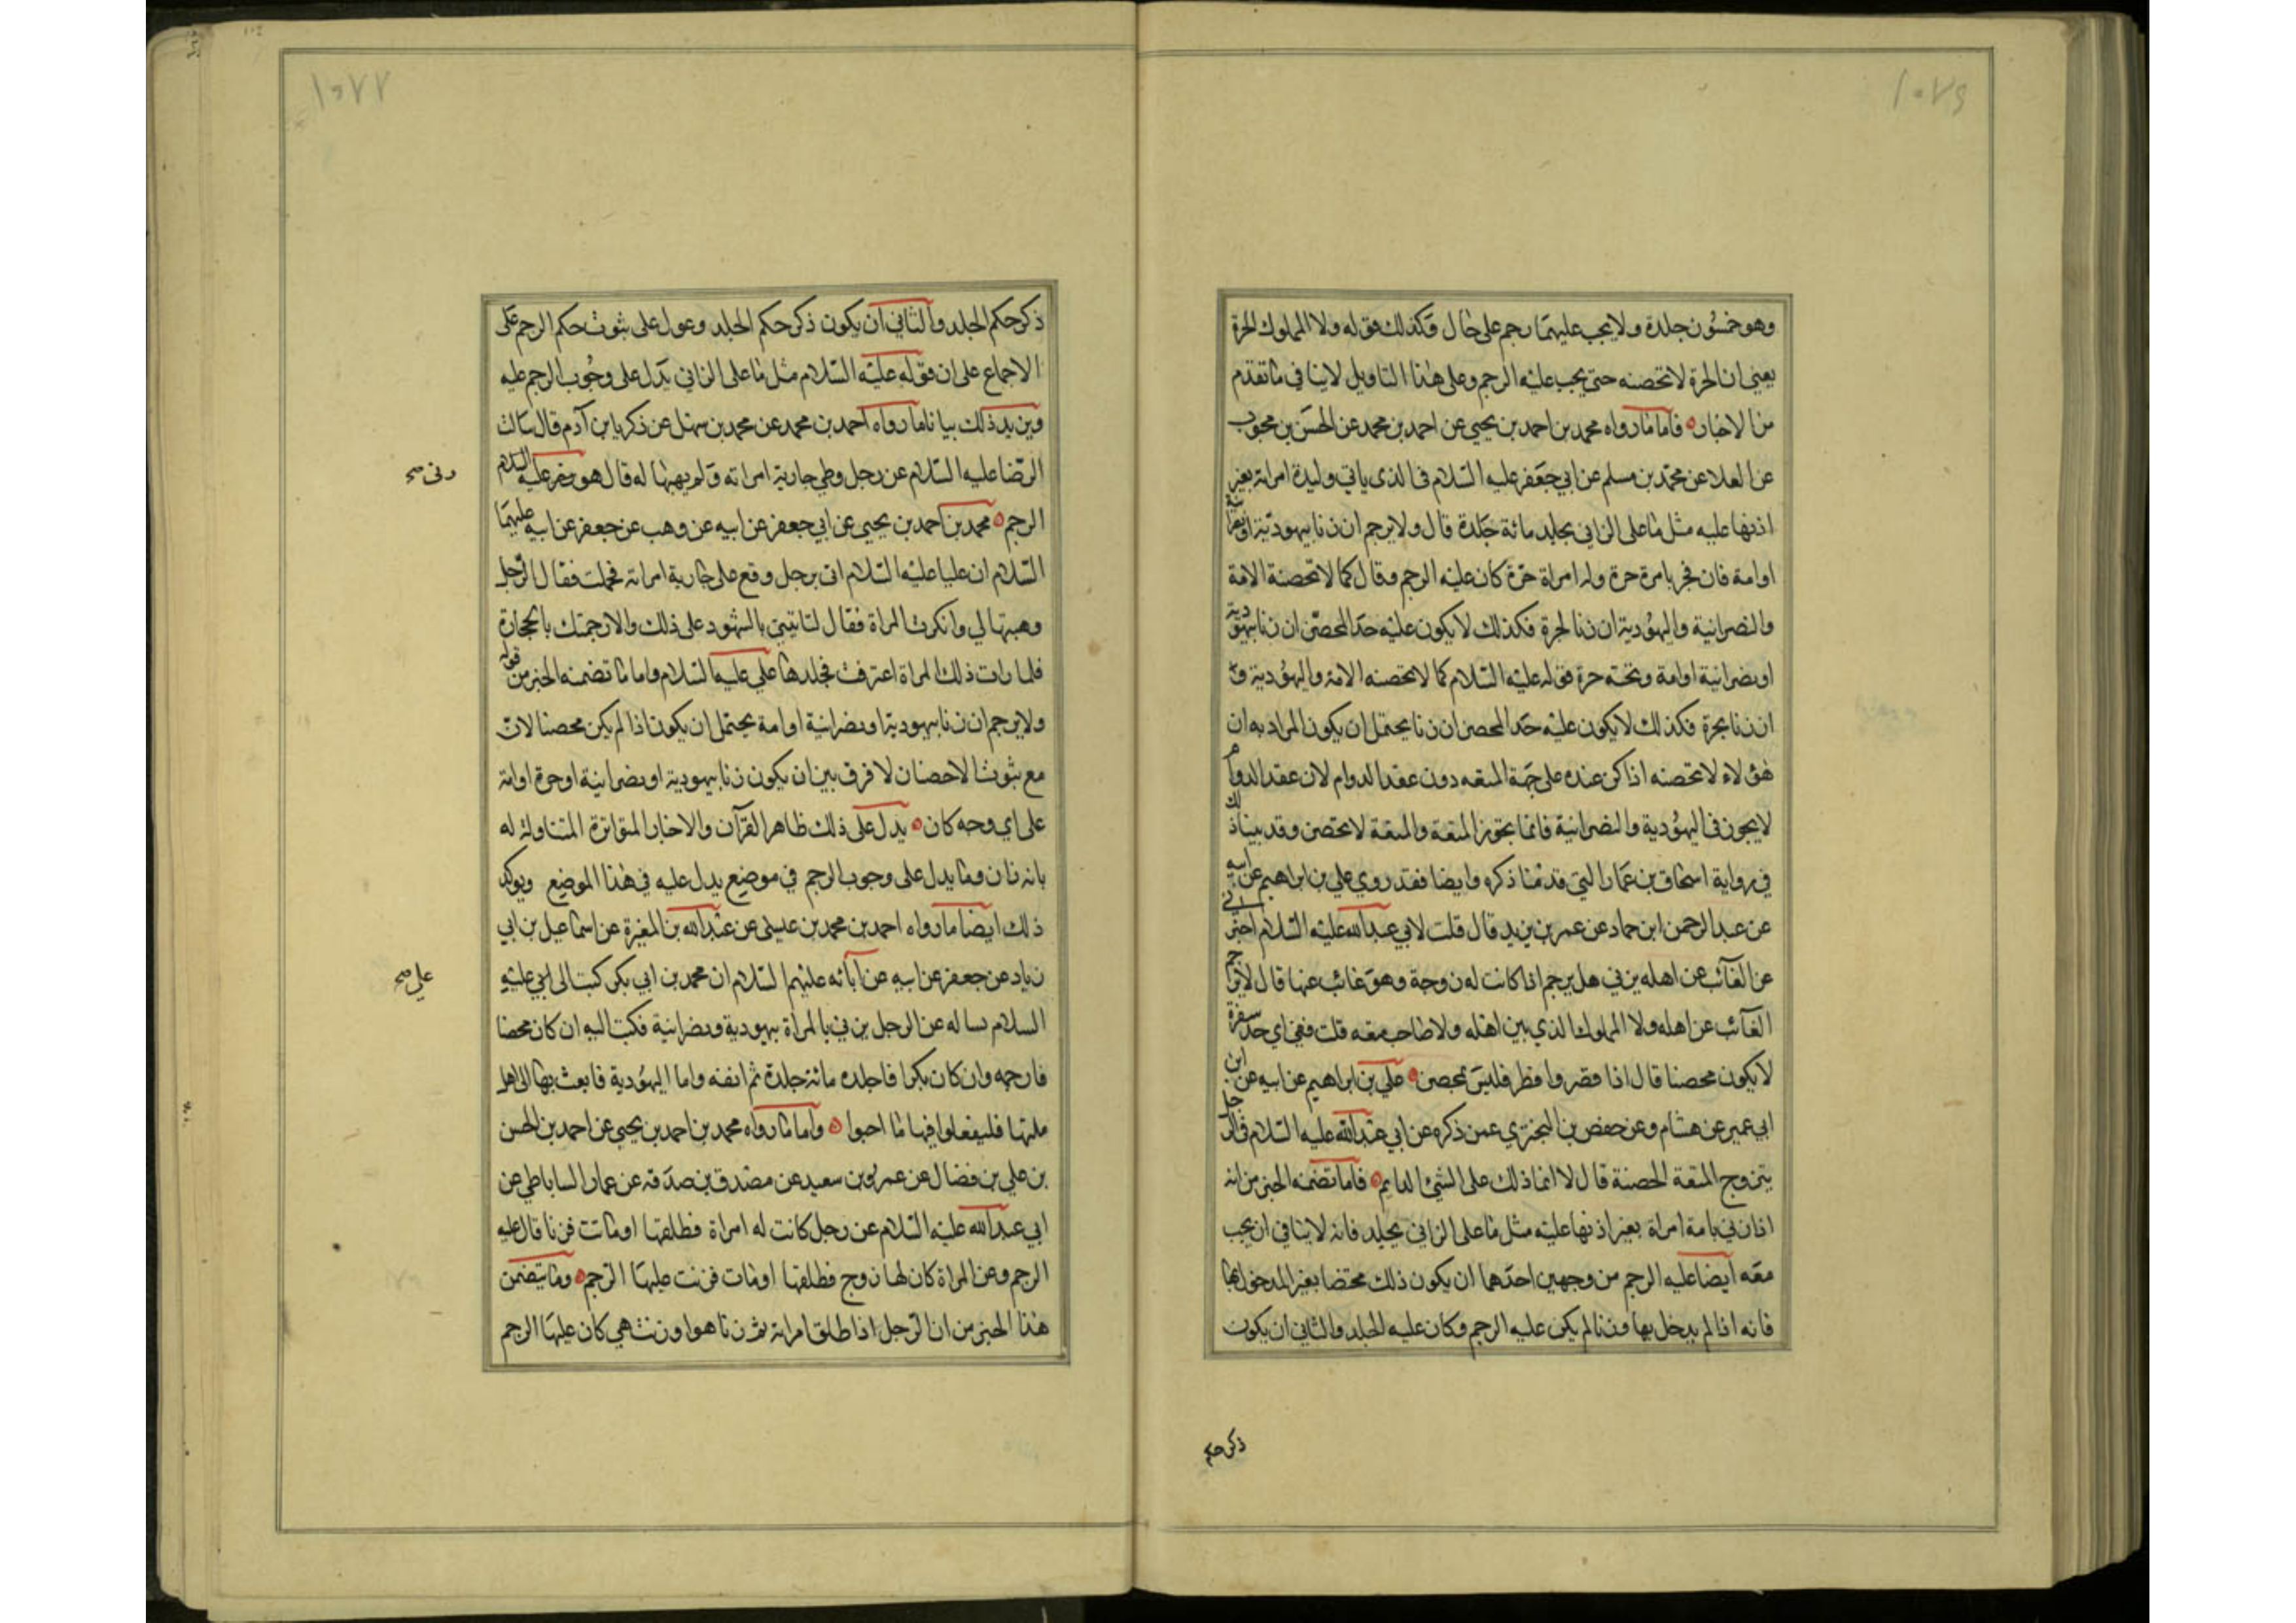 ١٠٧٦
وهو خمسون جلدة ولا يجب عليهما رجم على حال وكذلك قوله ولا المملوك الحرة
يعني ان الحرة لا تحصنه حتى يجب عليه الرجم وعلى هذا التاويل لا ينافي ما تقدم
من الاخبار فاما ما رواه محمد بن احمد بن يحيى عن احمد بن محمد عن الحسن بن محبوب
عن العلا عن محمد بن مسلم عن ابي جعفر عليه السلام في الذي ياتي وليدة امراته بغير
اذنها عليه مثل ما على الزاني يجلد مائة جلدة قال ولا يرجم ان زنا بيهودية او نصرانية
او امة فان فجر بامرة حرة وله امراة حرة كان عليه الرجم وقال كما لا تحصنه الامة
والنصرانية واليهودية ان زنا الحرة فكذلك لا يكون عليه حد المحصن ان زنا بيهودية
او نصرانية او امة وتحته حرة فقوله عليه السلام كما لا تحصنه الامة واليهودية و
ان زنا بحرة فكذلك لا يكون عليه حد المحصن ان زنا يحتمل ان يكون المراد به ان
هؤلاء لا تحصنه اذا كن عنده على جهة المتعه دون عقد الدوام لان عقد الدوام
لا يجوز في اليهودية والنصرانية فانما يجوز المتعة والمتعة لا تحصن وقد بينا ذلك
في رواية اسحاق بن عمار التي قدمنا ذكره وايضا فقد روي علي بن ابراهيم عن ابيه
عن عبد الرحمن ابن حماد عن عمر بن يزيد قال قلت لابي عبد الله عليه السلام اخبرني
عن الغائب عن اهله يزني هل يرجم اذا كانت له زوجة وهو غائب عنها قال لا يرجم
الغائب عن اهله ولا المملوك الذي يبن اهله ولا صاحب متعه قلت ففي اي حد سفرة
لا يكون محصنا قال اذا قصر وافطر فليس بمحصن علي بن ابراهيم عن ابيه عن ابن
ابي عمير عن هشام وعن حفص بن البختري عمن ذكره عن ابي عبد الله عليه السلام في الرجل
يتزوج المتعة الحصنة قال لا انما ذلك على الشئ الدايم فاما تضمنه الخبر من انه
اذا زني بامة امراة بغير اذنها عليه مثل ما على الزاني يجلد فانه لا ينافي ان يجب
معه ايضا عليه الرجم من وجهين احدهما ان يكون ذلك مختصا بغير المدخول بها
فانه اذا لم يدخل بها وزنا لم يكن عليه الرجم وكان عليه الجلد والثاني ان يكون
ذكر حكم
١٠٧٧
ذكر حكم الجلد والثاني ان يكون ذكر حكم الجلد وعول على ثبوت حكم الرجم على
الاجماع على ان قوله عليه السلام مثل ما على الزاني يدل على وجوب الرجم عليه
ويزيد ذلك بيانا ما رواه احمد بن محمد عن محمد بن سهل عن زكريا بن آدم قال سالت
الرضا عليه السلام عن رجل وطي جارية امراته ولم يهبها له قال هو عليه السلام
الرجم محمد بن احمد بن يحيى عن ابي جعفر عن ابيه عن وهب عن جعفر عن ابيه عليهما
السلام ان عليا عليه السلام اتى برجل وقع على جارية امراته فحملت فقال الرجل
وهبتها لي وانكرت المراة فقال لتاتيني بالشهود على ذلك والا رجمتك بالحجارة
فلما رات ذلك المراة اعترفت فجلدها علي عليه السلام واما ما تضمنه الخبر من قوله
ولا يرجم ان زنا بيهودية او نصرانية او امة يحتمل ان يكون اذا لم يكن محصنا لان
مع ثبوت الاحصان لا فرق بين ان يكون زنا بيهودية او نصرانية او حرة او امة
على اي وجه كان يدل على ذلك ظاهر القرآن والاخبار المتواترة المتناولة له
بانه زان وما يدل على وجوب الرجم في موضع يدل عليه في هذا الموضع ويوكد
ذلك ايضا ما رواه احمد بن محمد بن عيسى عن عبد الله بن المغيرة عن اسماعيل بن ابي
زياد عن جعفر عن ابيه عن آبائه عليهم السلام ان محمد بن ابي بكر كتب الى علي عليه
السلام يساله عن الرجل يزني بالمراة يهودية ونصرانية فكتب اليه ان كان محصنا
فارجمه وان كان بكرا فاجلده مائة جلدة ثم انفه واما اليهودية فابعث بها الى اهل
ملتها فليفعلوا فيها ما احبوا واما ما رواه محمد بن احمد بن يحيى عن احمد بن الحسن
بن علي بن فضال عن عمرو بن سعيد عن مصدق بن صدقه عن عمار الساباطي عن
ابي عبد الله عليه السلام عن رجل كانت له امراة فطلقها او ماتت فزنا قال عليه
الرجم وعن المراة كان لها زوج فطلقها او مات فزنت عليها الرجم وما يتضمن
هذا الخبر من ان الرجل اذا طلق امراته ثم زنا هو او زنت هي كان عليها الرجم
علي صح